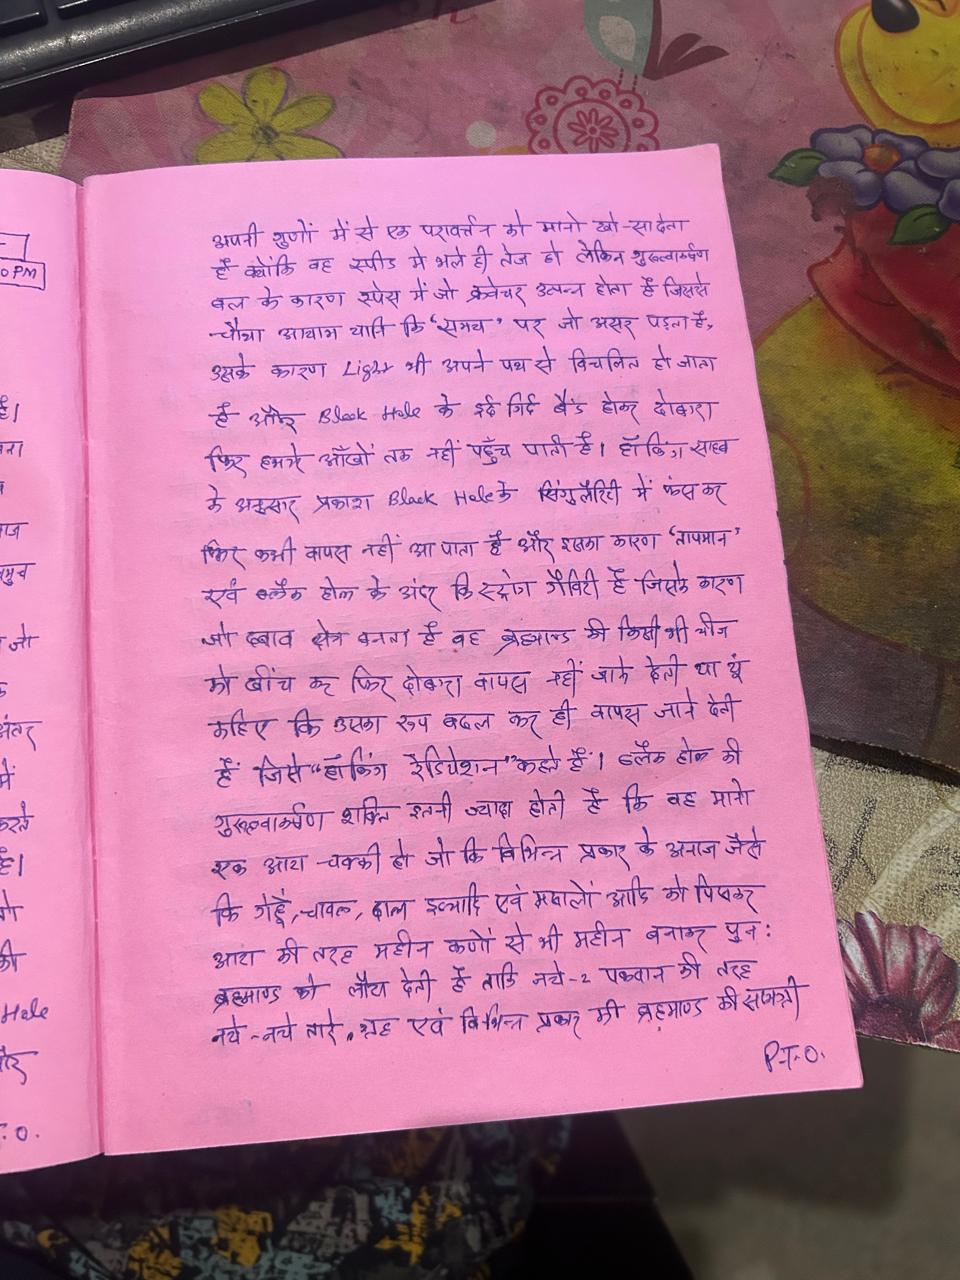 अपनी गुणों में से एक परावर्त्तन को मानो खो-सा देता
है क्योंकि वह स्पीड में भले ही तेज हो लेकिन गुरूत्वाकर्षण
बल के कारण स्पेस में जो क्रवेचर उत्पन्न होता है जिससे
चौथा आयाम यानि कि 'समय' पर जो असर पड़ता है,
उसके कारण Light भी अपने पथ से विचलित हो जाता
है और Black Hole के इर्द गिर्द बैंड होकर दोबारा
फिर हमारे आँखों तक नहीं पहुँच पाती है। हॉकिंग साहब
के अनुसार प्रकाश Black Hole के सिंगुलैरिटी में फंस कर
फिर कभी वापस नहीं आ पाता है और इसका कारण 'तापमान'
एवं ब्लैक होल के अंदर कि स्ट्रोंग ग्रैविटी है जिसके कारण
जो दबाव क्षेत्र बनता है वह ब्रह्माण्ड की किसी भी चीज
को खींच कर फिर दोबारा वापस नहीं जाने देती या यूं
कहिए कि उसका रूप बदल कर ही वापस जाने देती
है जिसे "हॉकिंग रेडियेशन" कहते हैं। ब्लैक होल की
गुरूत्वाकर्षण शक्ति इतनी ज्यादा होती है कि वह मानो
एक आटा चक्की हो जो कि विभिन्न प्रकार के अनाज जैसे
कि गेहूँ, चावल, दाल इत्यादि एवं मसालों आदि को पिसकर
आटा की तरह महीन कणों से भी महीन बनाकर पुन:
ब्रह्माण्ड को लौटा देती है ताकि नये-2 पकवान की तरह
नये-नये तारे, ग्रह एवं विभिन्न प्रकार की ब्रह्माण्ड की सामग्री
P.T.O.